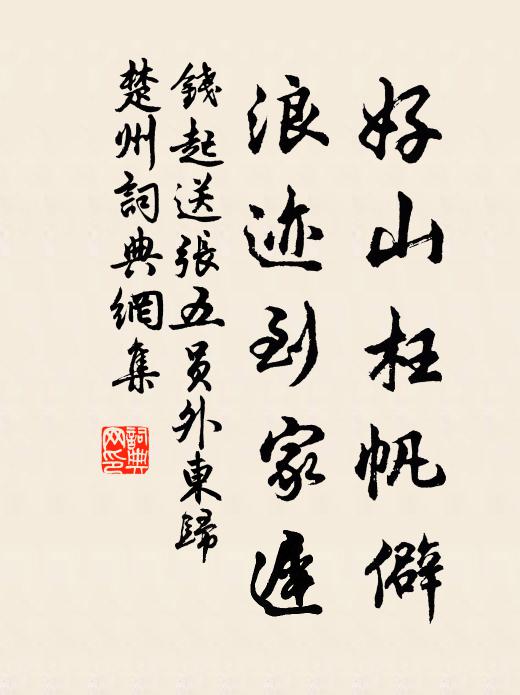 好山枉帆僻
浪迹到家遲
錢起送張五员外東歸
楚州詞典網集
詞典网印